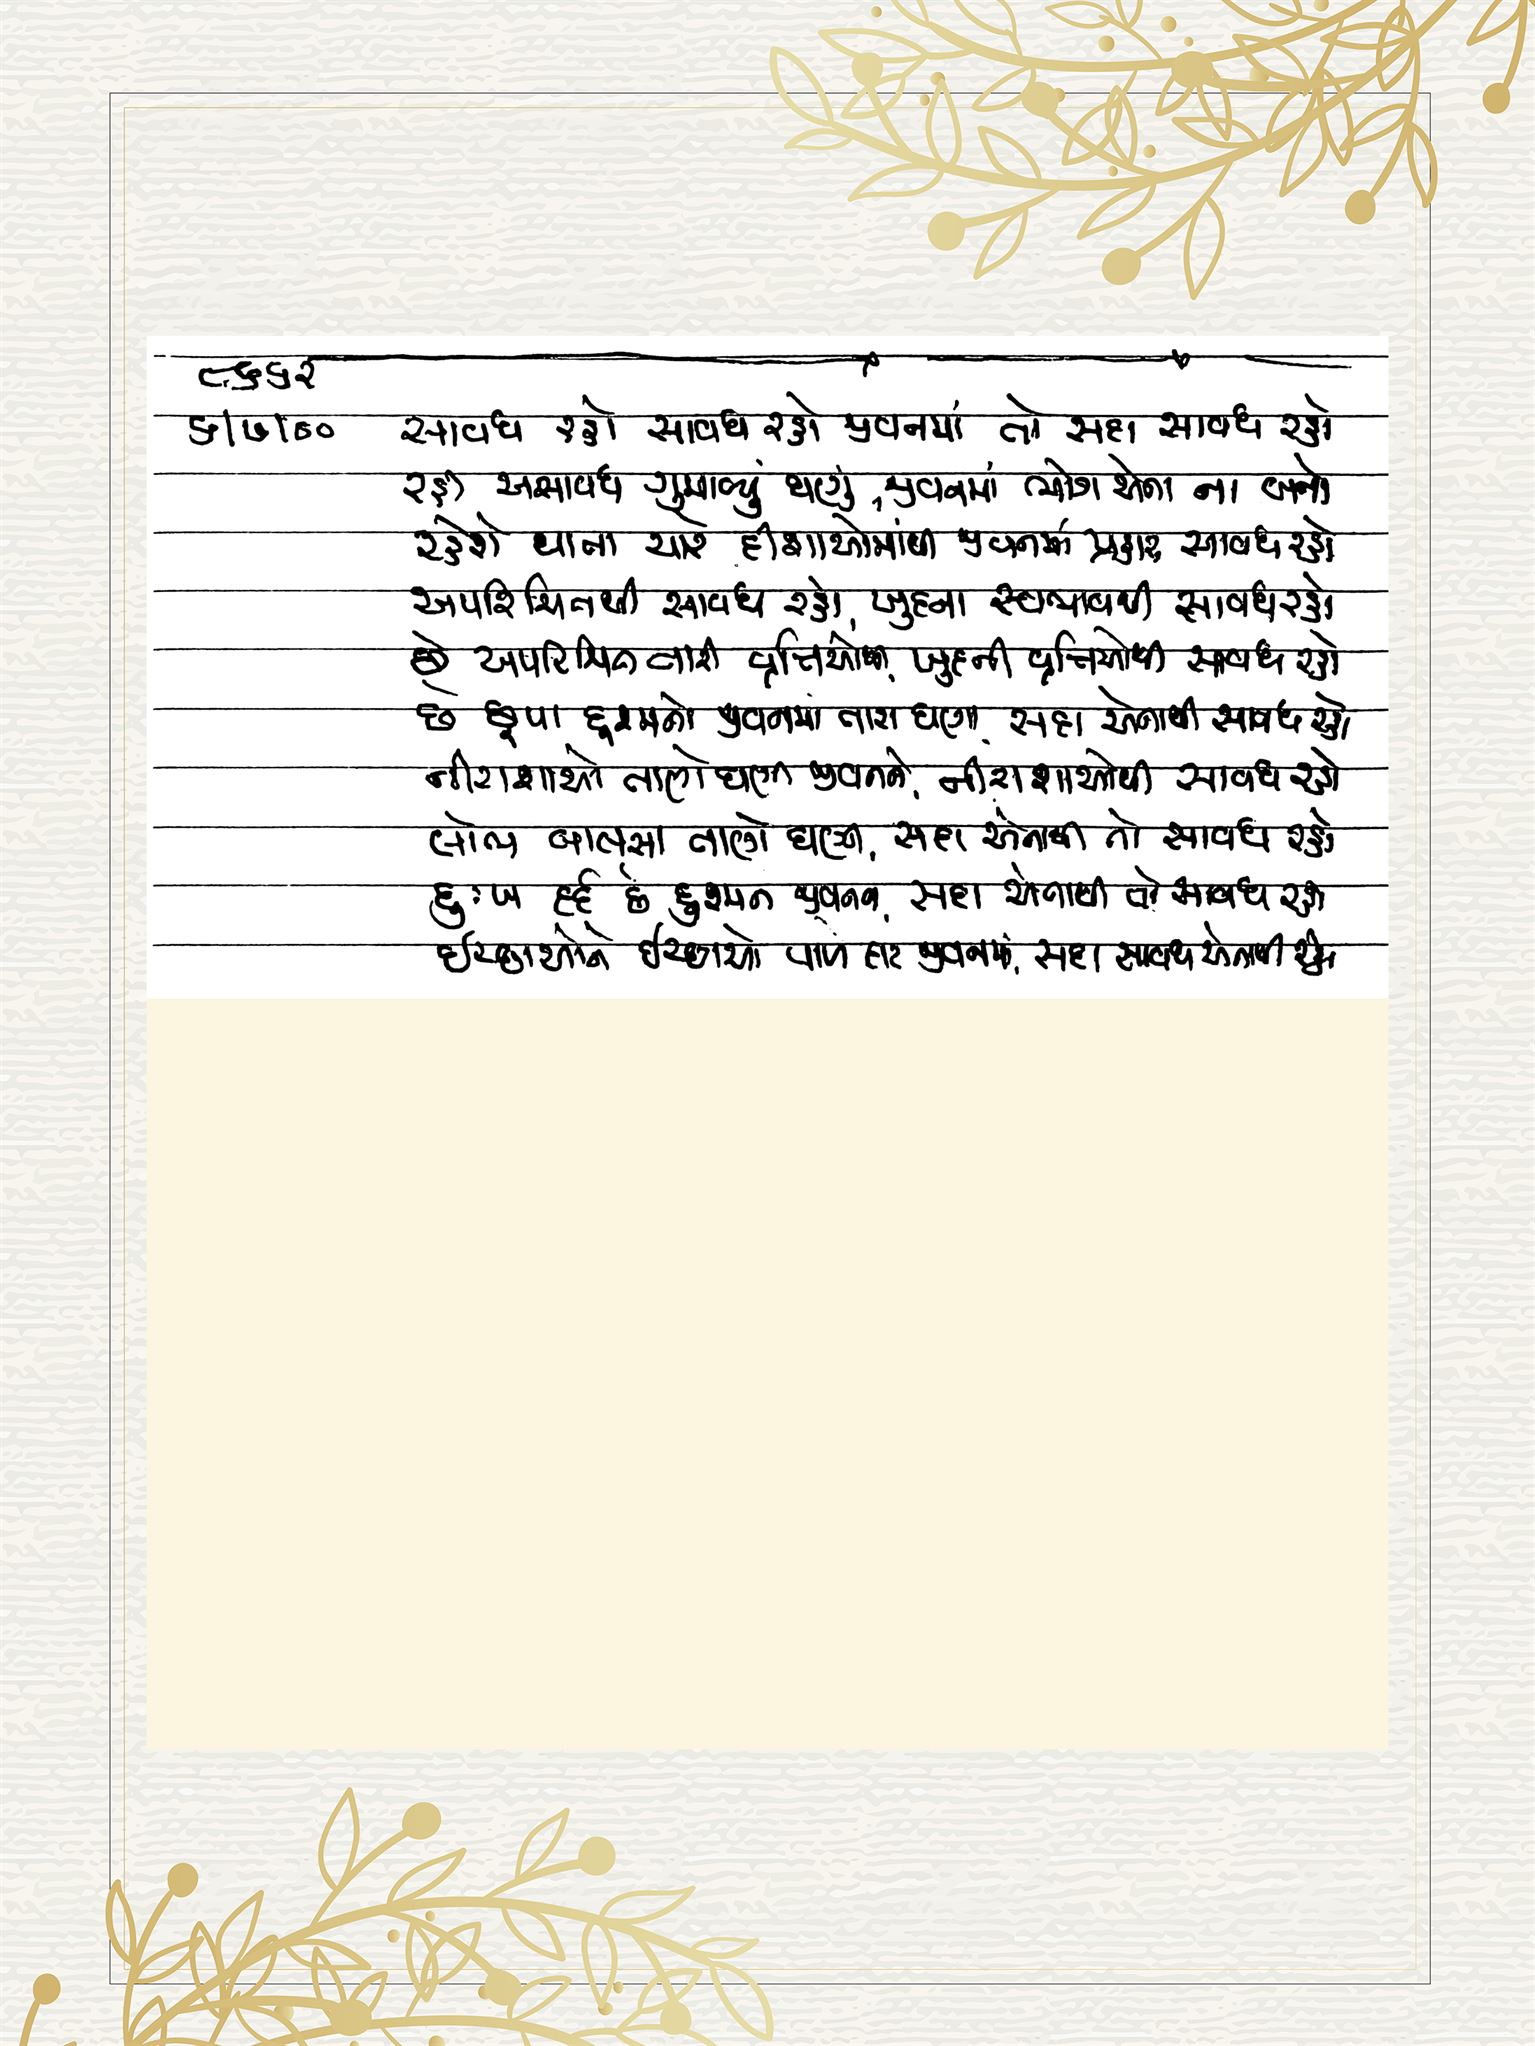 ૯૬૬૨
૬/૭/૦૦ સાવધ રહો સાવધ રહો જીવનમાં તો સદા સાવધ રહો
રહી અસાવધ ગુમાવ્યું ઘણું, જીવનમાં ભોગ એના ના બનો
રહેશે થાતા ચારે દીશાઓમાંથી જીવનમાં પ્રહાર સાવધ રહો
અપરિચિતથી સાવધ રહો, ખુદના સ્વભાવથી સાવધ રહો
છે અપરિચિત તારી વૃત્તિઓથી, ખુદની વૃત્તિઓથી સાવધ રહો
છે છૂપા દુશ્મનો જીવનમાં તારા ઘણા, સદા એનાથી સાવધ રહો
નીરાશાઓ તાણો ઘણી જીવનને, નીરાશાઓથી સાવધ રહો
લોભ લાલસા તાણો ઘણી, સદા એનાથી તો સાવધ રહો
દુઃખ દર્દ છે દુશ્મન જીવનના, સદા એનાથી તો સાવધ રહો
ઈચ્છાઓને ઈચ્છાઓ હાર જીવનમાં, સદા સાવધ એનાથી રહો